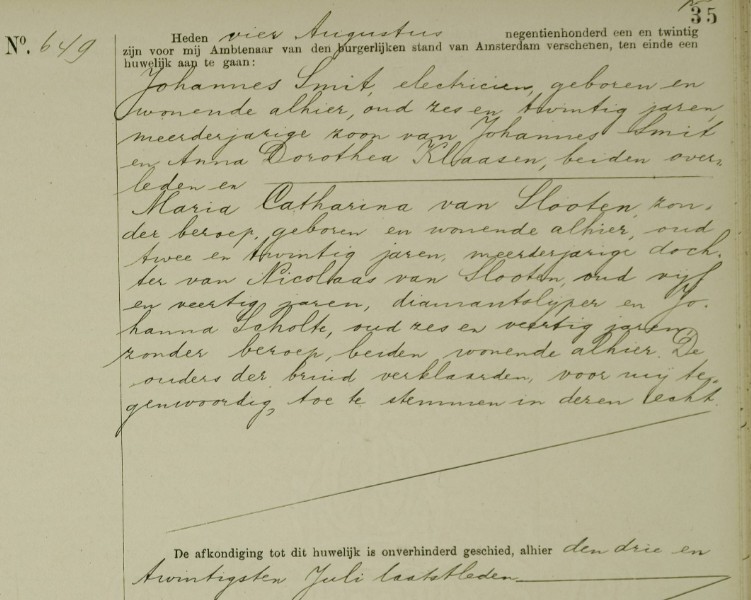 35
Nº. 649
Heden vier Augustus negentienhonderd een en twintig
zijn voor mij Ambtenaar van den burgerlijken stand van Amsterdam verschenen, ten einde een
huwelijk aan te gaan:
Johannes Smit, electricien, geboren en
wonende alhier, oud zes en twintig jaren,
meerderjarige zoon van Johannes Smit
en Anna Dorothea Klaasen, beiden over-
leden en
Maria Catharina van Slooten, zon-
der beroep, geboren en wonende alhier, oud
twee en twintig jaren, meerderjarige doch-
ter van Nicolaas van Slooten, oud vijf
en veertig jaren, diamantslyper en Jo-
hanna Scholte, oud zes en veertig jaren,
zonder beroep, beiden wonende alhier. De
ouders der bruid verklaarden, voor mij te-
genwoordig, toe te stemmen in deren echt.
De afkondiging tot dit huwelijk is onverhinderd geschied, alhier den drie en
twintigsten Juli laatstleden